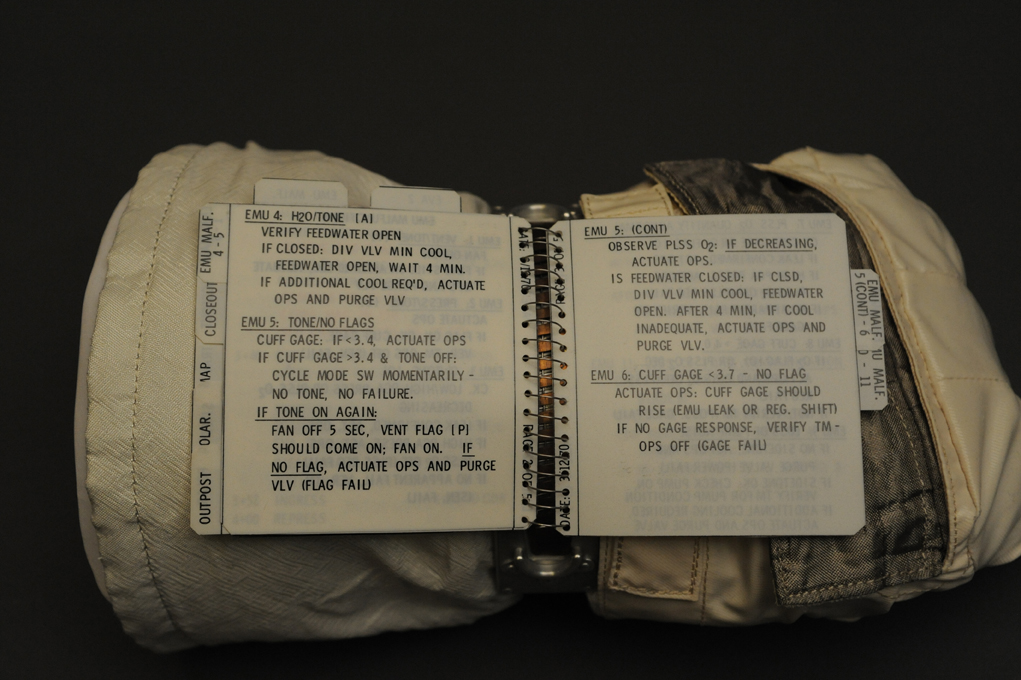 EMU MALF.
4 - 5
CLOSEOUT
1AP
OLAR.
OUTPOST
EMU 4: H2O/TONE [A]
VERIFY FEEDWATER OPEN
IF CLOSED: DIV VLV MIN COOL,
FEEDWATER OPEN, WAIT 4 MIN.
IF ADDITIONAL COOL REQ'D, ACTUATE
OPS AND PURGE VLV
EMU 5: TONE/NO FLAGS
CUFF GAGE: IF <3.4, ACTUATE OPS
IF CUFF GAGE >3.4 & TONE OFF:
CYCLE MODE SW MOMENTARILY -
NO TONE, NO FAILURE.
IF TONE ON AGAIN:
FAN OFF 5 SEC, VENT FLAG [P]
SHOULD COME ON; FAN ON. IF
NO FLAG, ACTUATE OPS AND PURGE
VLV (FLAG FAIL)
DATE:
EMU 5: (CONT)
OBSERVE PLSS O2: IF DECREASING,
ACTUATE OPS.
IS FEEDWATER CLOSED: IF CLSD,
DIV VLV MIN COOL, FEEDWATER
OPEN. AFTER 4 MIN, IF COOL
INADEQUATE, ACTUATE OPS AND
PURGE VLV.
EMU 6: CUFF GAGE <3.7 - NO FLAG
ACTUATE OPS: CUFF GAGE SHOULD
RISE (EMU LEAK OR REG. SHIFT)
IF NO GAGE RESPONSE, VERIFY TM -
OPS OFF (GAGE FAIL)
EMU MALF.
5 (CONT) - 6
1U MALF.
- 11